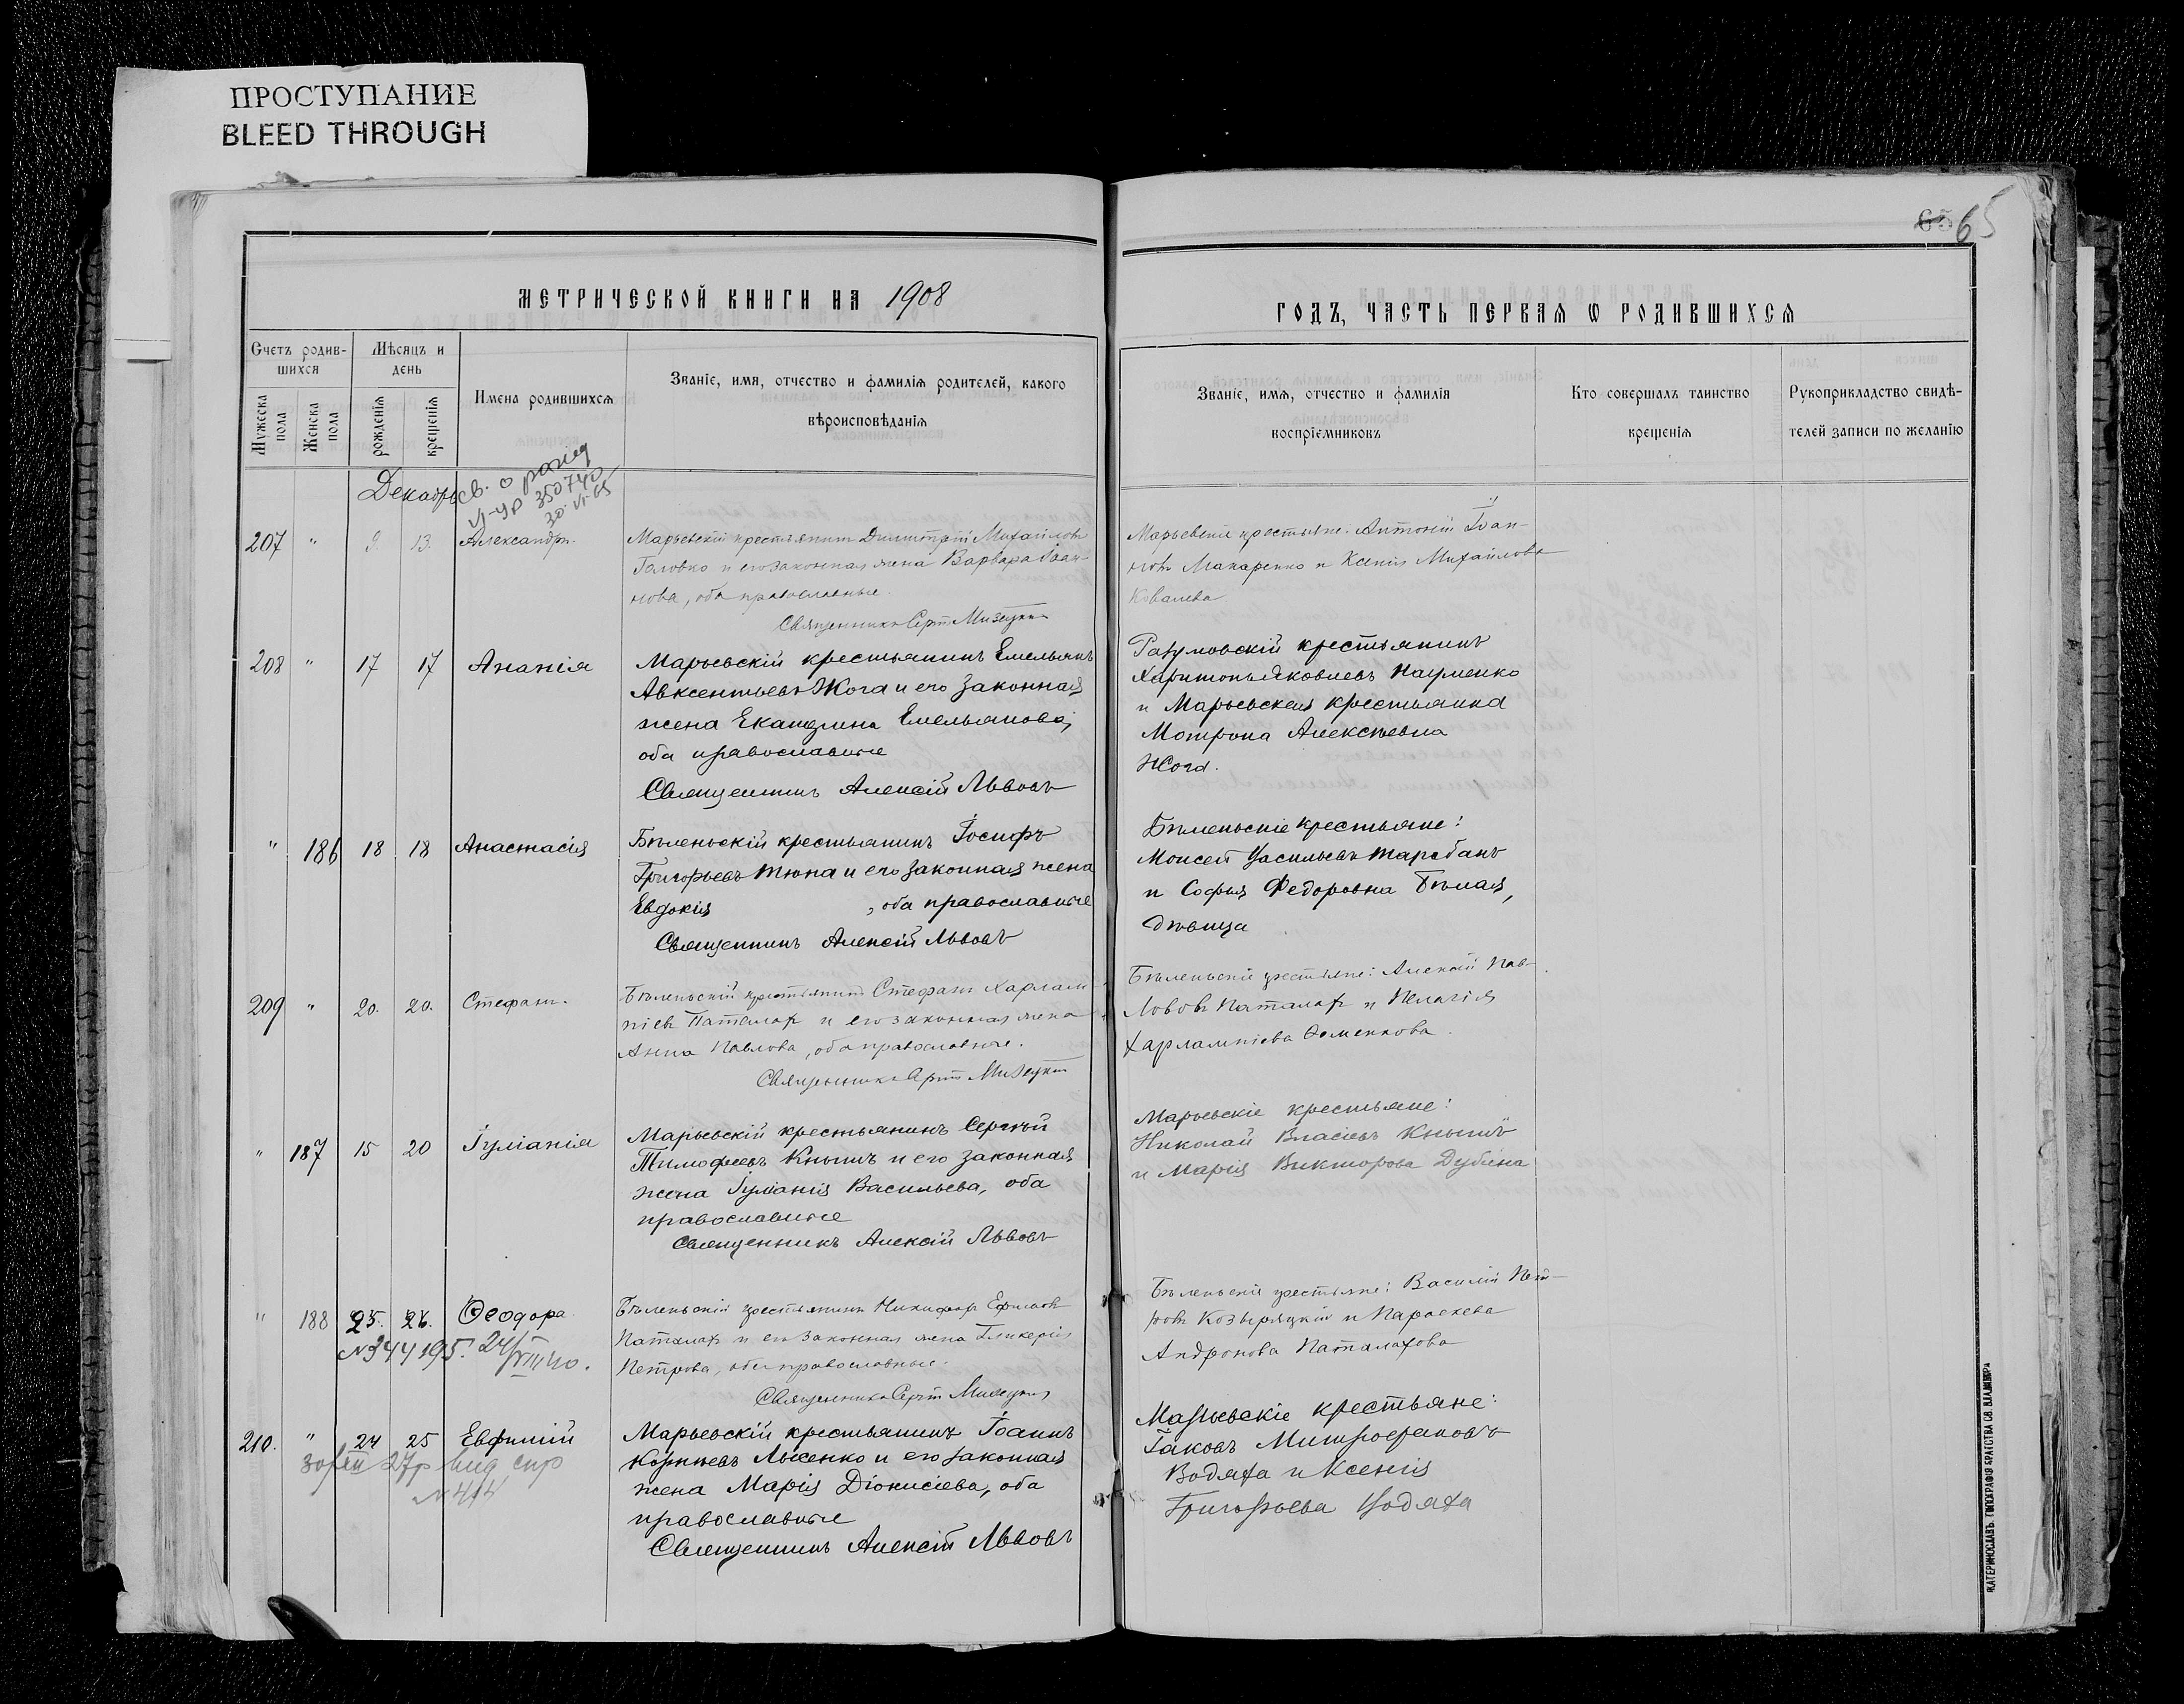 ПРОСТУПАНИЕ
BLEED THROUGH
65 65
МЕТРИЧЕСКОЙ КНИГИ НА 1908
Счетъ родив-
шихся
Мѣсяцъ и
день
Мужеска
пола
Женска
пола
рожденія
крещенія
Имена родившихся
Званіе, имя, отчество и фамилія родителей, какого
вѣроисповѣданія
Декабрь
св. о
350740
30-VI-65
207 " 9. 13. Александръ.
Марьевскій крестьянинъ Димитрій Михайловъ
Головко и его законная жена Варвара Іоан-
нова, оба православные.
Священникъ
208 " 17 17 Ананія
Марьевскій крестьянинъ Емельянъ
Авксентьевъ Жога и его законная
жена Екатерина Емельянова,
оба православные
Священникъ Алексій Львовъ
" 186 18 18 Анастасія
Бѣленьскій крестьянинъ Іосифъ
Григорьевъ Тюпа и его законная жена
Евдокія , оба православные
Священникъ Алексій Львовъ
209 " 20. 20. Стефанъ.
Бѣленьскій крестьянинъ Стефанъ Харлам-
піевъ Паталах и его законная жена
Анна Павлова, оба православные.
Священникъ
" 187 15 20 Іуліанія
Марьевскій крестьянинъ Сергѣй
Тимофеевъ Кнышъ и его законная
жена Іуліанія Васильева, оба
православные
Священникъ Алексій Львовъ
" 188 25. 26. Ѳеодора
№344195. 24/VIII 40.
Бѣленьскій крестьянинъ Никифоръ
Паталах и его законная жена Гликерія
Петрова, оба православные.
Священникъ
210. " 24 25 Евфимій
№ 414
Марьевскій крестьянинъ Іоаннъ
Корнѣевъ Лысенко и его законная
жена Марія Діонисіева, оба
православные
Священникъ Алексій Львовъ
ГОДЪ, ЧАСТЬ ПЕРВАЯ Ѡ РОДИВШИХСЯ
Званіе, имя, отчество и фамилія
воспріемниковъ
Кто совершалъ таинство
крещенія
Рукоприкладство свидѣ-
телей записи по желанію
Марьевскіе крестьяне: Антоній Іоан-
новъ Макаренко и Ксенія Михайлова
Ковалева
Разумовскій крестьянинъ
Харитонъ Яковлевъ Науменко
и Марьевская крестьянка
Мотрона Алексѣевна
Жога.
Бѣленьскіе крестьяне:
Моисей Васильевъ Тарабанъ
и Софья Федоровна Бѣлая,
дѣвица
Бѣленьскіе крестьяне: Алексій Пав-
ловъ Паталах и Пелагія
Харлампіева Фоменкова.
Марьевскіе крестьяне:
Николай Власіевъ Кнышъ
и Марія Викторова Дубина
Бѣленьскіе крестьяне: Василій Пет-
ровъ Козырицкій и Параскева
Андронова Паталахова
Марьевскіе крестьяне:
Іаковъ Митрофановъ
Водяха и Ксенія
Григорьева Водяха
ЕКАТЕРИНОСЛАВЪ. ТИПОГРАФІЯ БРАТСТВА СВ. ВЛАДИМІРА